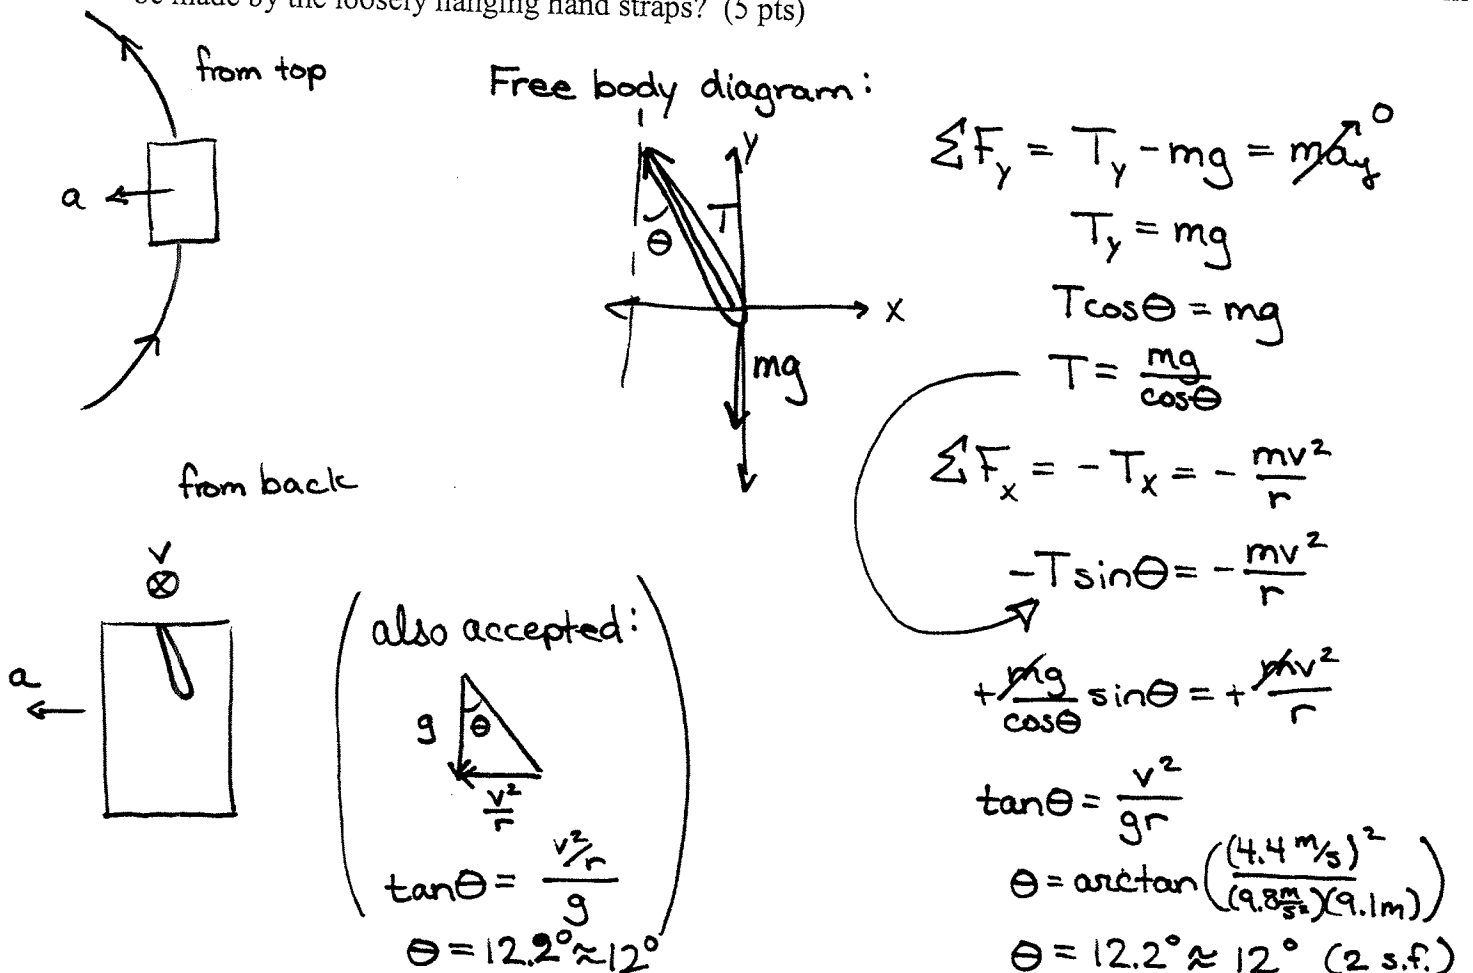 be made by the loosely hanging hand straps? (5 pts)
from top
a
Free body diagram:
y
T
θ
x
mg
from back
v
a
(also accepted:
g
θ
v²/r
tanθ = (v²/r)/g
θ = 12.2° ≈ 12°)
ΣF_y = T_y - mg = ma_y 0
T_y = mg
Tcosθ = mg
T = mg/cosθ
ΣF_x = -T_x = - mv²/r
-Tsinθ = - mv²/r
+ mg/cosθ sinθ = + mv²/r
tanθ = v²/gr
θ = arctan((4.4 m/s)²/(9.8 m/s²)(9.1m))
θ = 12.2° ≈ 12° (2 s.f.)